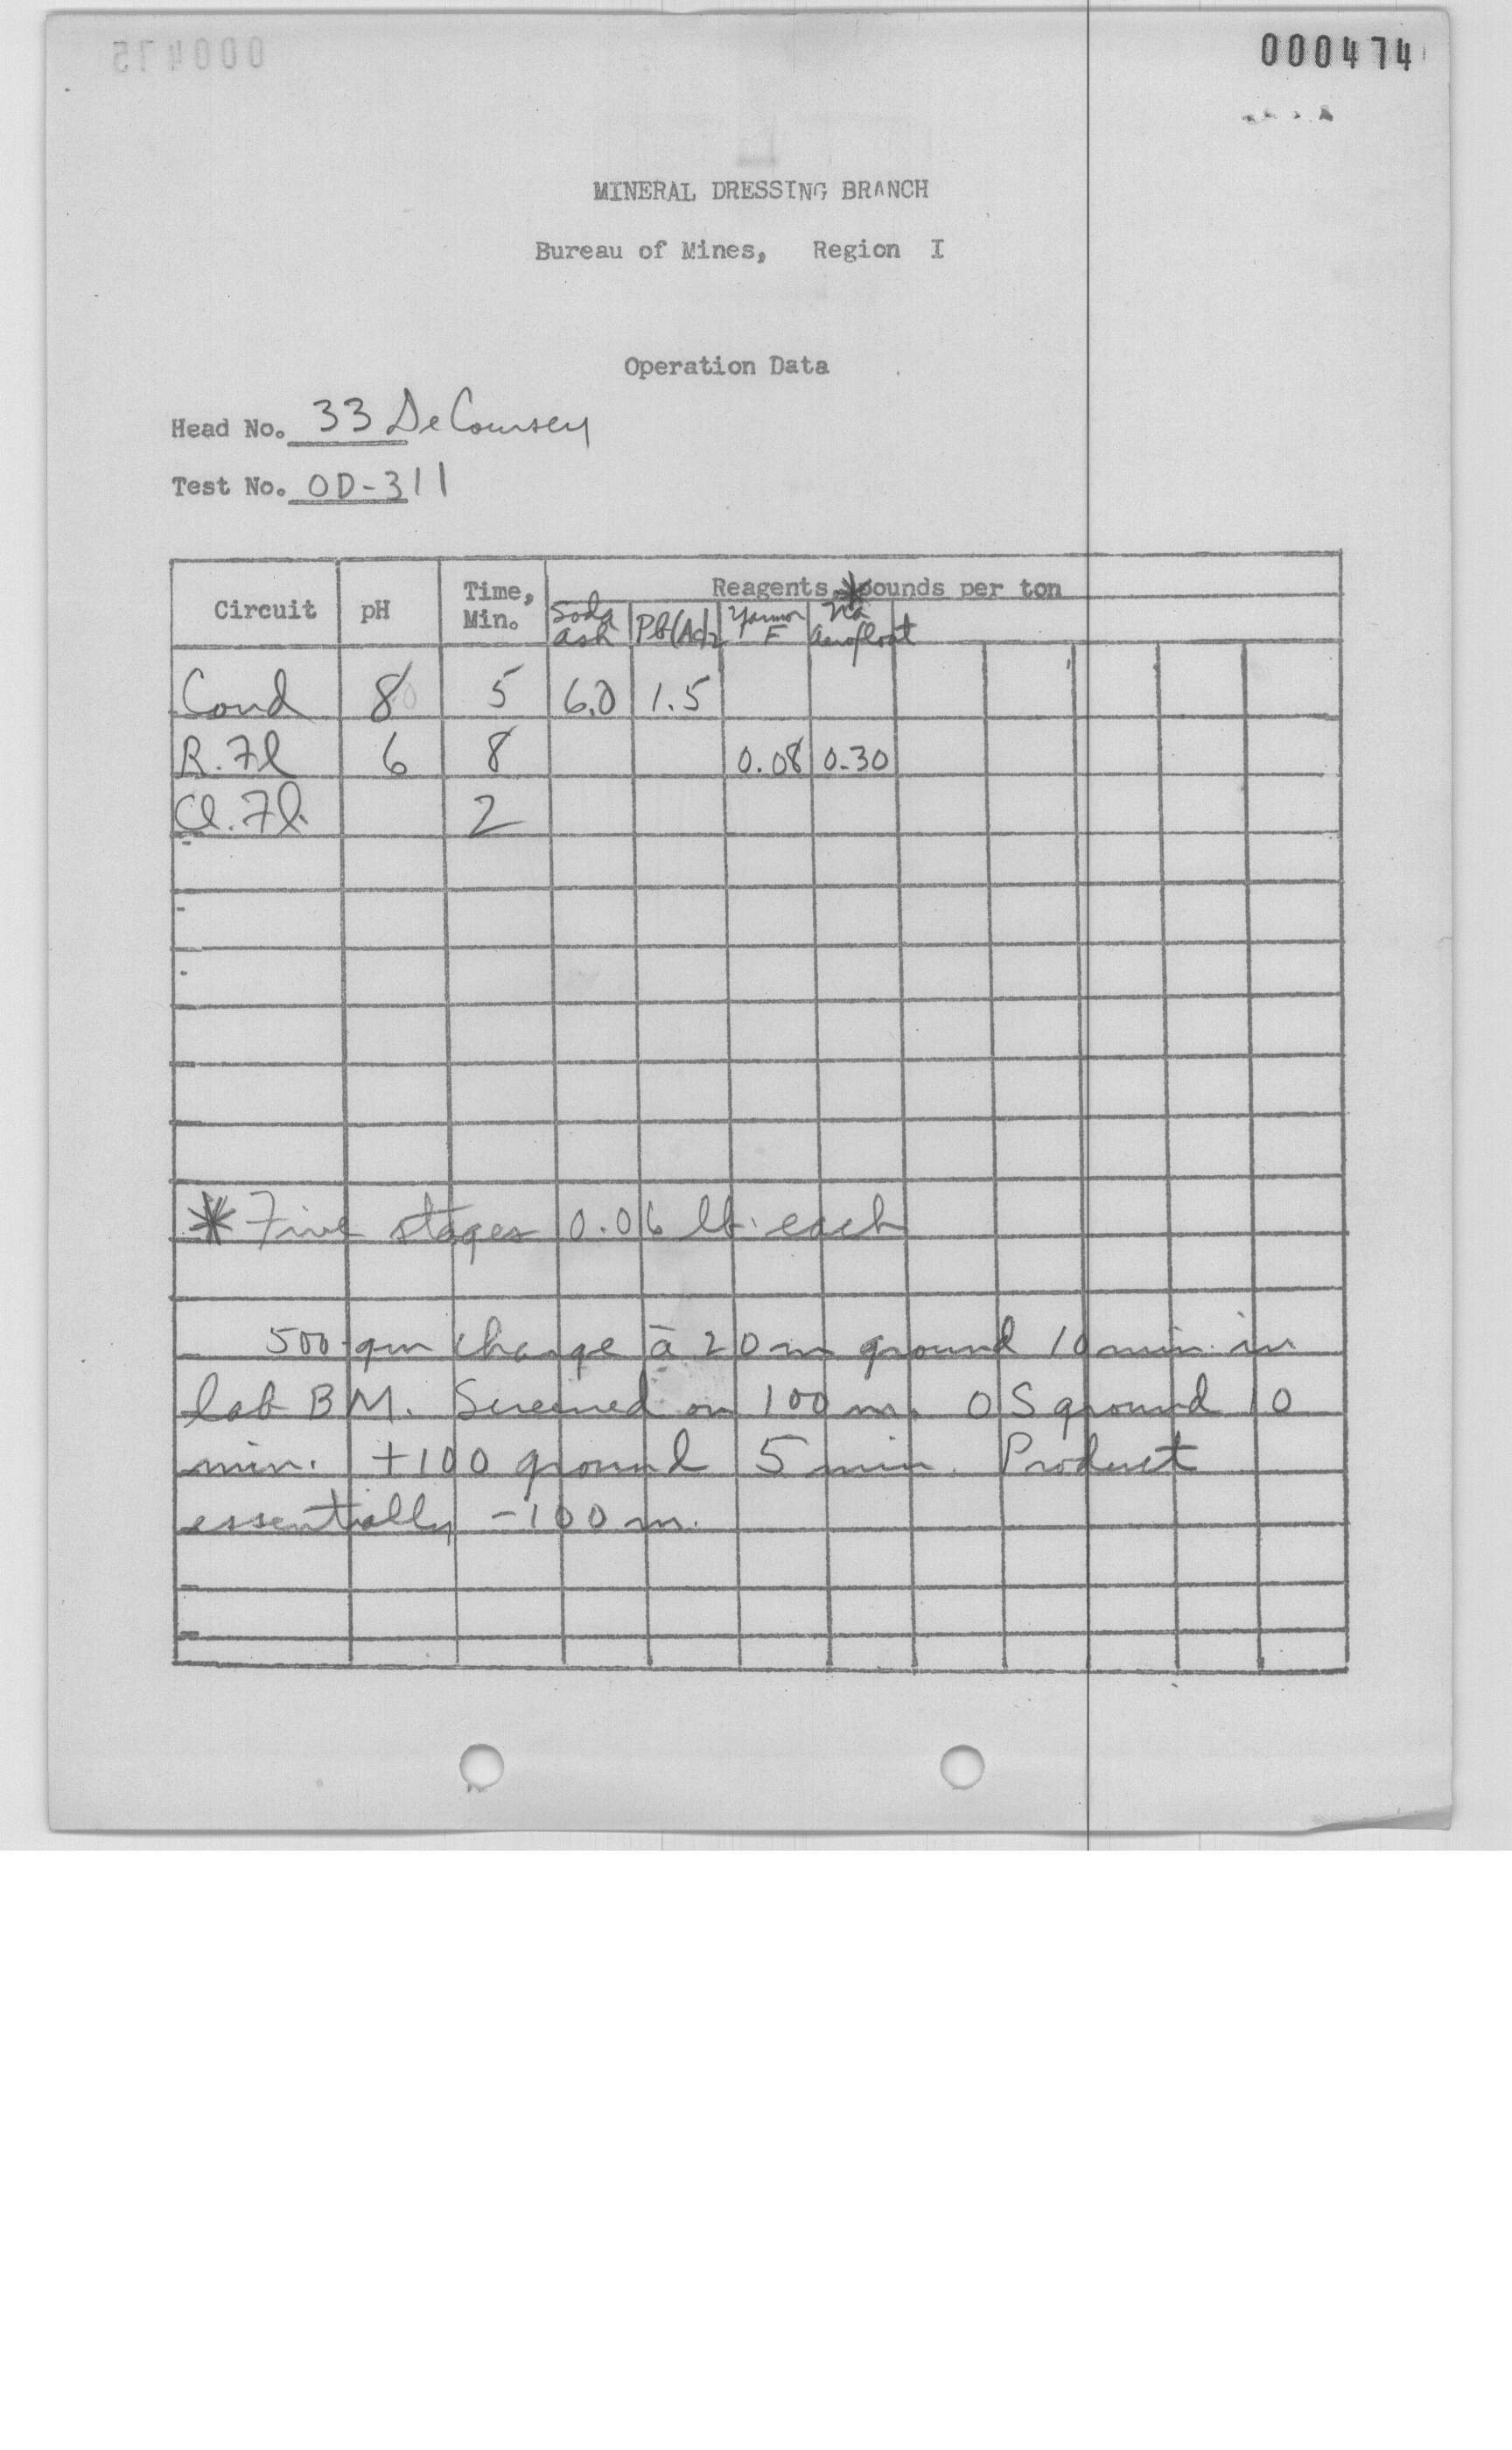 000474
MINERAL DRESSING BRANCH
Bureau of Mines, Region I
Operation Data
Head No. 33 DeCoursey
Test No. OD-311
Circuit pH Time, Min. Reagents, * pounds per ton
Soda Ash Pb(Ac)2 Yarmor F Na Aerofloat
Cond 8 5 6.0 1.5
R. Fl 6 8 0.08 0.30
Cl. Fl. 2
* Five stages 0.06 lb. each
500-gm charge ā 20 m ground 10 min. in
lab BM. Screened on 100 m. OS ground 10
min. +100 ground 5 min. Product
essentially -100 m.